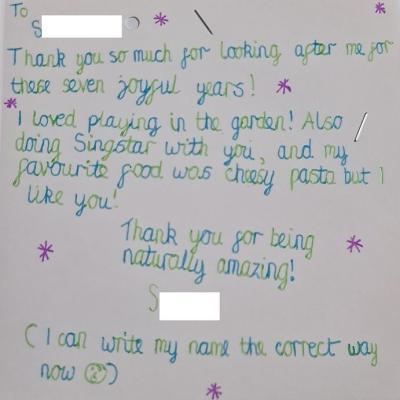 To
S
Thank you so much for looking after me for
these seven joyful years!
I loved playing in the garden! Also
doing Singstar with you, and my
favourite food was cheesy pasta but I
like you!
Thank you for being
naturally amazing!
S
(I can write my name the correct way
now ☹)